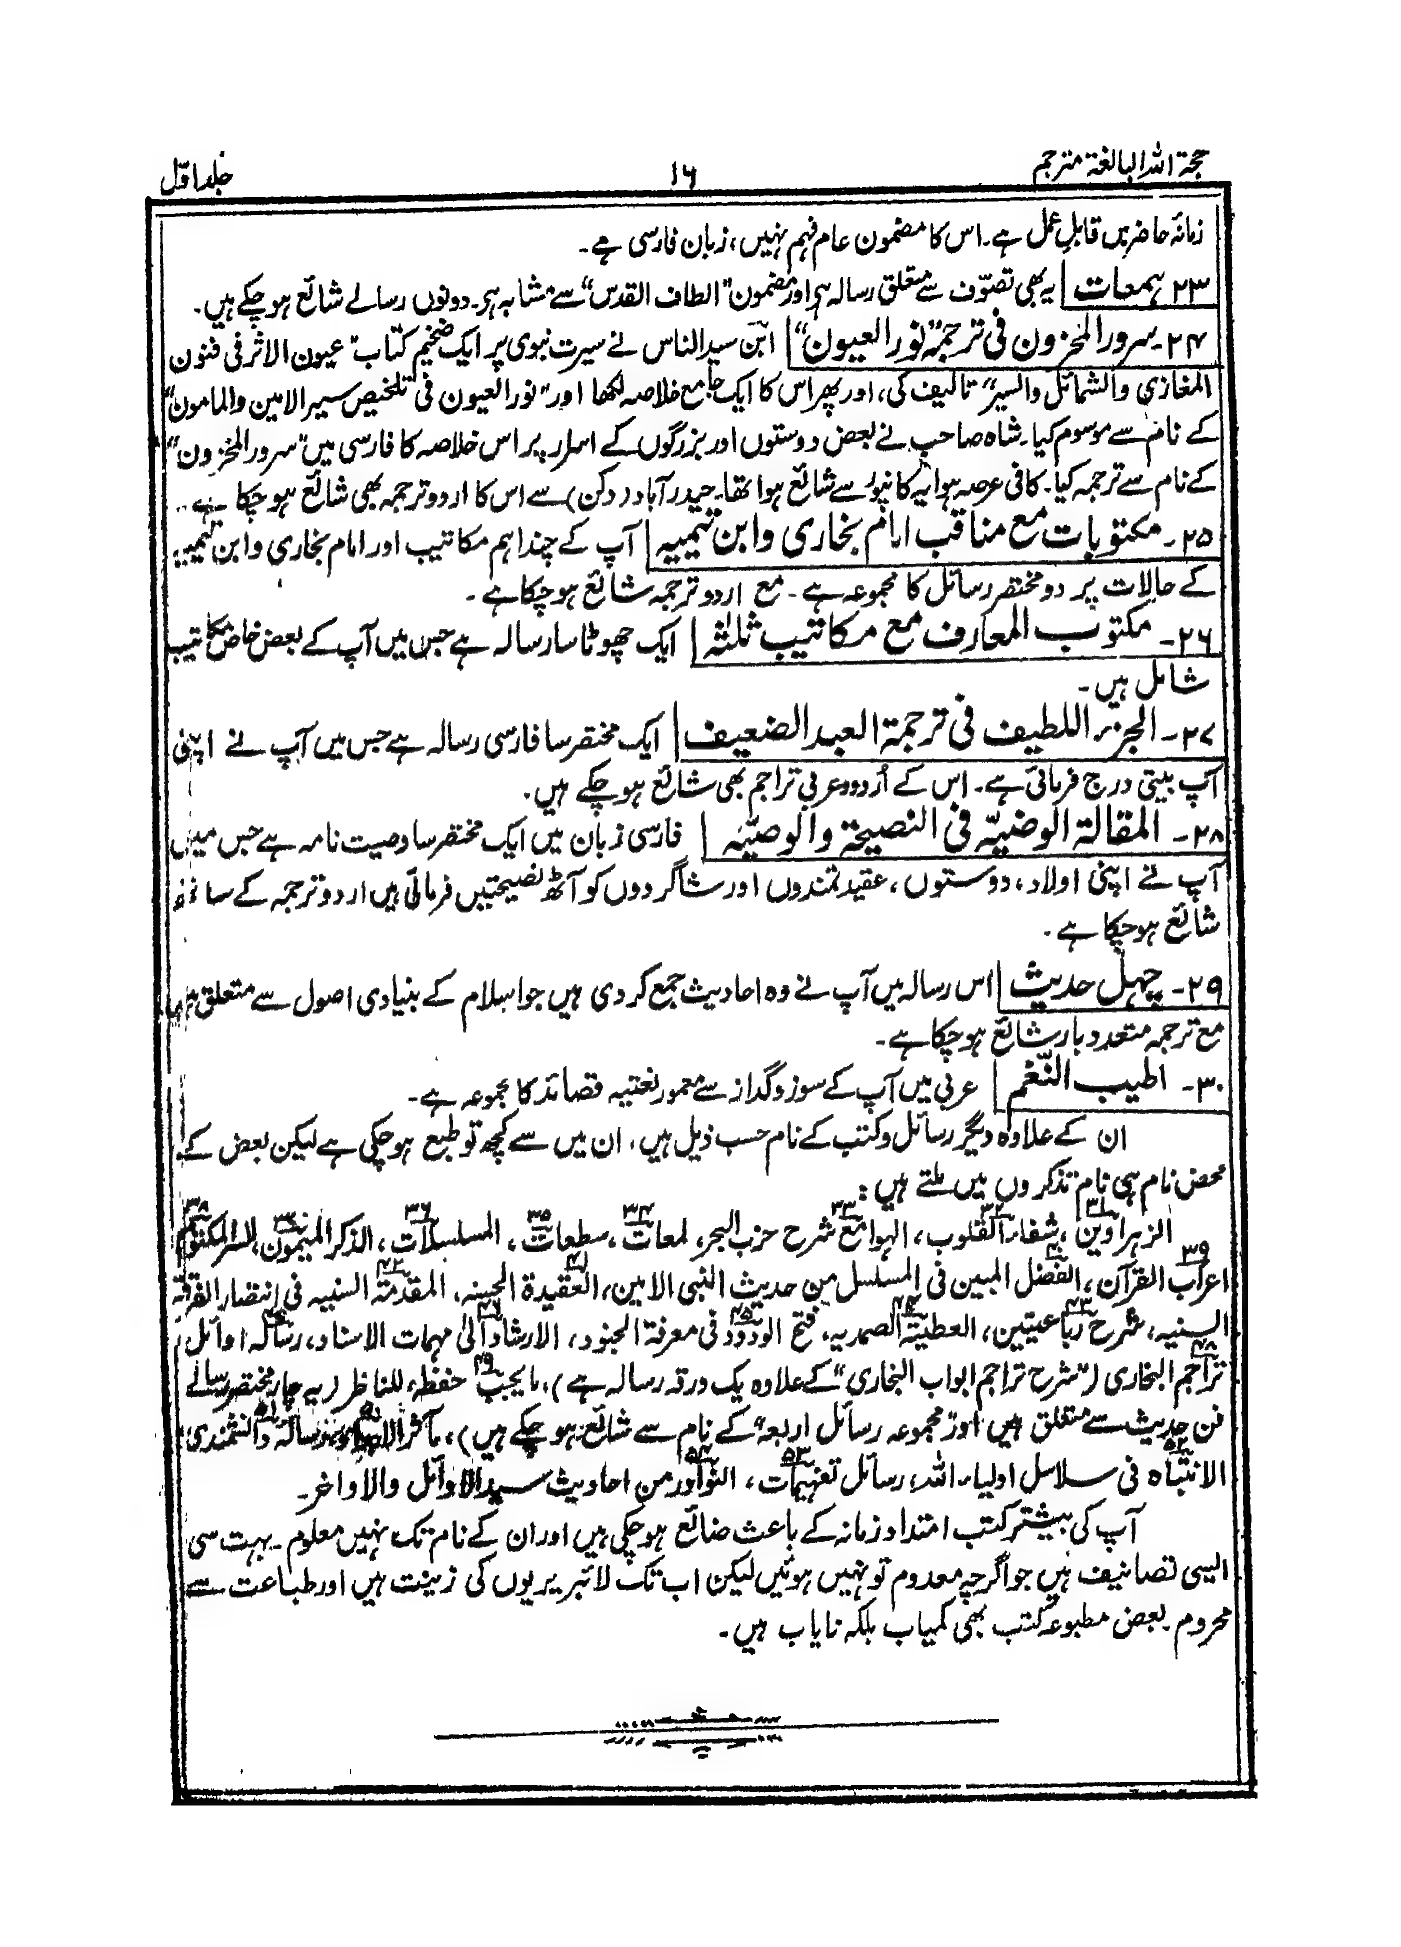 حجۃ اللہ البالغۃ مترجم
۱۶
جلد اوّل
زمانۂ حاضر میں قابلِ عمل ہے۔ اس کا مضمون عام فہم نہیں، زبان فارسی ہے۔
۲۳ ہمعات یہ بھی تصوّف سے متعلق رسالہ ہے اور مضمون "الطاف القدس" سے مشابہ ہے۔ دونوں رسالے شائع ہو چکے ہیں۔
۲۴۔ سرور المخزون فی ترجمۃ "نور العیون" ابن سید الناس نے سیرت نبوی پر ایک ضخیم کتاب "عیون الاثر فی فنون
المغازی والشمائل والسیر" تالیف کی، اور پھر اس کا ایک جامع خلاصہ لکھا اور "نور العیون فی تلخیص سیر الامین والمامون"
کے نام سے موسوم کیا۔ شاہ صاحب نے بعض دوستوں اور بزرگوں کے اسرار پر اس خلاصہ کا فارسی میں "سرور المخزون"
کے نام سے ترجمہ کیا۔ کافی عرصہ ہوا یہ کانپور سے شائع ہوا تھا۔ حیدر آباد (دکن) سے اس کا اردو ترجمہ بھی شائع ہو چکا ہے۔
۲۵۔ مکتوبات مع مناقب امام بخاری وابن تیمیہ آپ کے چند اہم مکاتیب اور امام بخاری وابن تیمیہ
کے حالات پر دو مختصر رسائل کا مجموعہ ہے۔ مع اردو ترجمہ شائع ہو چکا ہے۔
۲۶۔ مکتوب المعارف مع مکاتیب ثلٰثہ ایک چھوٹا سا رسالہ ہے جس میں آپ کے بعض خاص مکاتیب
شامل ہیں۔
۲۷۔ الجزء اللطیف فی ترجمۃ العبد الضعیف ایک مختصر سا فارسی رسالہ ہے جس میں آپ نے اپنی
آپ بیتی درج فرمائی ہے۔ اس کے اُردو و عربی تراجم بھی شائع ہو چکے ہیں۔
۲۸۔ المقالۃ الوضیّہ فی النصیحۃ والوصیّہ فارسی زبان میں ایک مختصر سا وصیت نامہ ہے جس میں
آپ نے اپنی اولاد، دوستوں، عقیدتمندوں اور شاگردوں کو آٹھ نصیحتیں فرمائی ہیں اردو ترجمہ کے ساتھ
شائع ہو چکا ہے۔
۲۹۔ چہل حدیث اس رسالہ میں آپ نے وہ احادیث جمع کر دی ہیں جو اسلام کے بنیادی اصول سے متعلق ہیں۔
مع ترجمہ متعدد بار شائع ہو چکا ہے۔
۳۰۔ اطیب النّغم عربی میں آپ کے سوز و گداز سے معمور نعتیہ قصائد کا مجموعہ ہے۔
ان کے علاوہ دیگر رسائل وکتب کے نام حسب ذیل ہیں، ان میں سے کچھ تو طبع ہو چکی ہے لیکن بعض کے
محض نام ہی نام تذکروں میں ملتے ہیں:
۳۱الزہراوین، ۳۲شفاء القلوب، ۳۳الہوامع شرح حزب البحر، ۳۴لمعات، ۳۵سطعات، ۳۶المسلسلات، ۳۷الذکر المیمون، ۳۸السر المکتوم،
۳۹اعراب القرآن، ۴۰الفضل المبین فی المسلسل من حدیث النبی الامین، ۴۱العقیدۃ الحسنہ، ۴۲المقدمۃ السنیہ فی انتصار الفرقۃ
السنیہ، ۴۳شرح رباعیتین، ۴۴العطیۃ الصمدیہ، ۴۵فتح الودود فی معرفۃ الجنود، ۴۶الارشاد الیٰ مہمات الاسناد، ۴۷رسالہ اوائل،
۴۸تراجم البخاری ("شرح تراجم ابواب البخاری" کے علاوہ یک ورقہ رسالہ ہے)، ۴۹ما یجب حفظہ للناظر (یہ چار مختصر رسالے
فن حدیث سے متعلق ہیں اور "مجموعہ رسائل اربعہ" کے نام سے شائع ہو چکے ہیں)، ۵۰مآثر الاجداد، ۵۱رسالہ دانشمندی،
۵۲الانتباہ فی سلاسل اولیاء اللہ، ۵۳رسائل تفہیمات، ۵۴النوادر من احادیث سید الاوائل والاواخر۔
آپ کی بیشتر کتب امتداد زمانہ کے باعث ضائع ہو چکی ہیں اور ان کے نام تک نہیں معلوم۔ بہت سی
ایسی تصانیف ہیں جو اگرچہ معدوم تو نہیں ہوئیں لیکن اب تک لائبریریوں کی زینت ہیں اور طباعت سے
محروم۔ بعض مطبوعہ کتب بھی کمیاب بلکہ نایاب ہیں۔